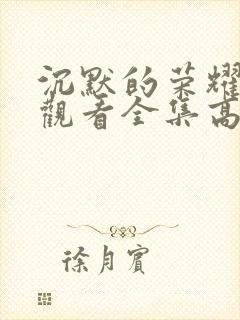 沉默的荣耀
觀看全集高
徐月賓